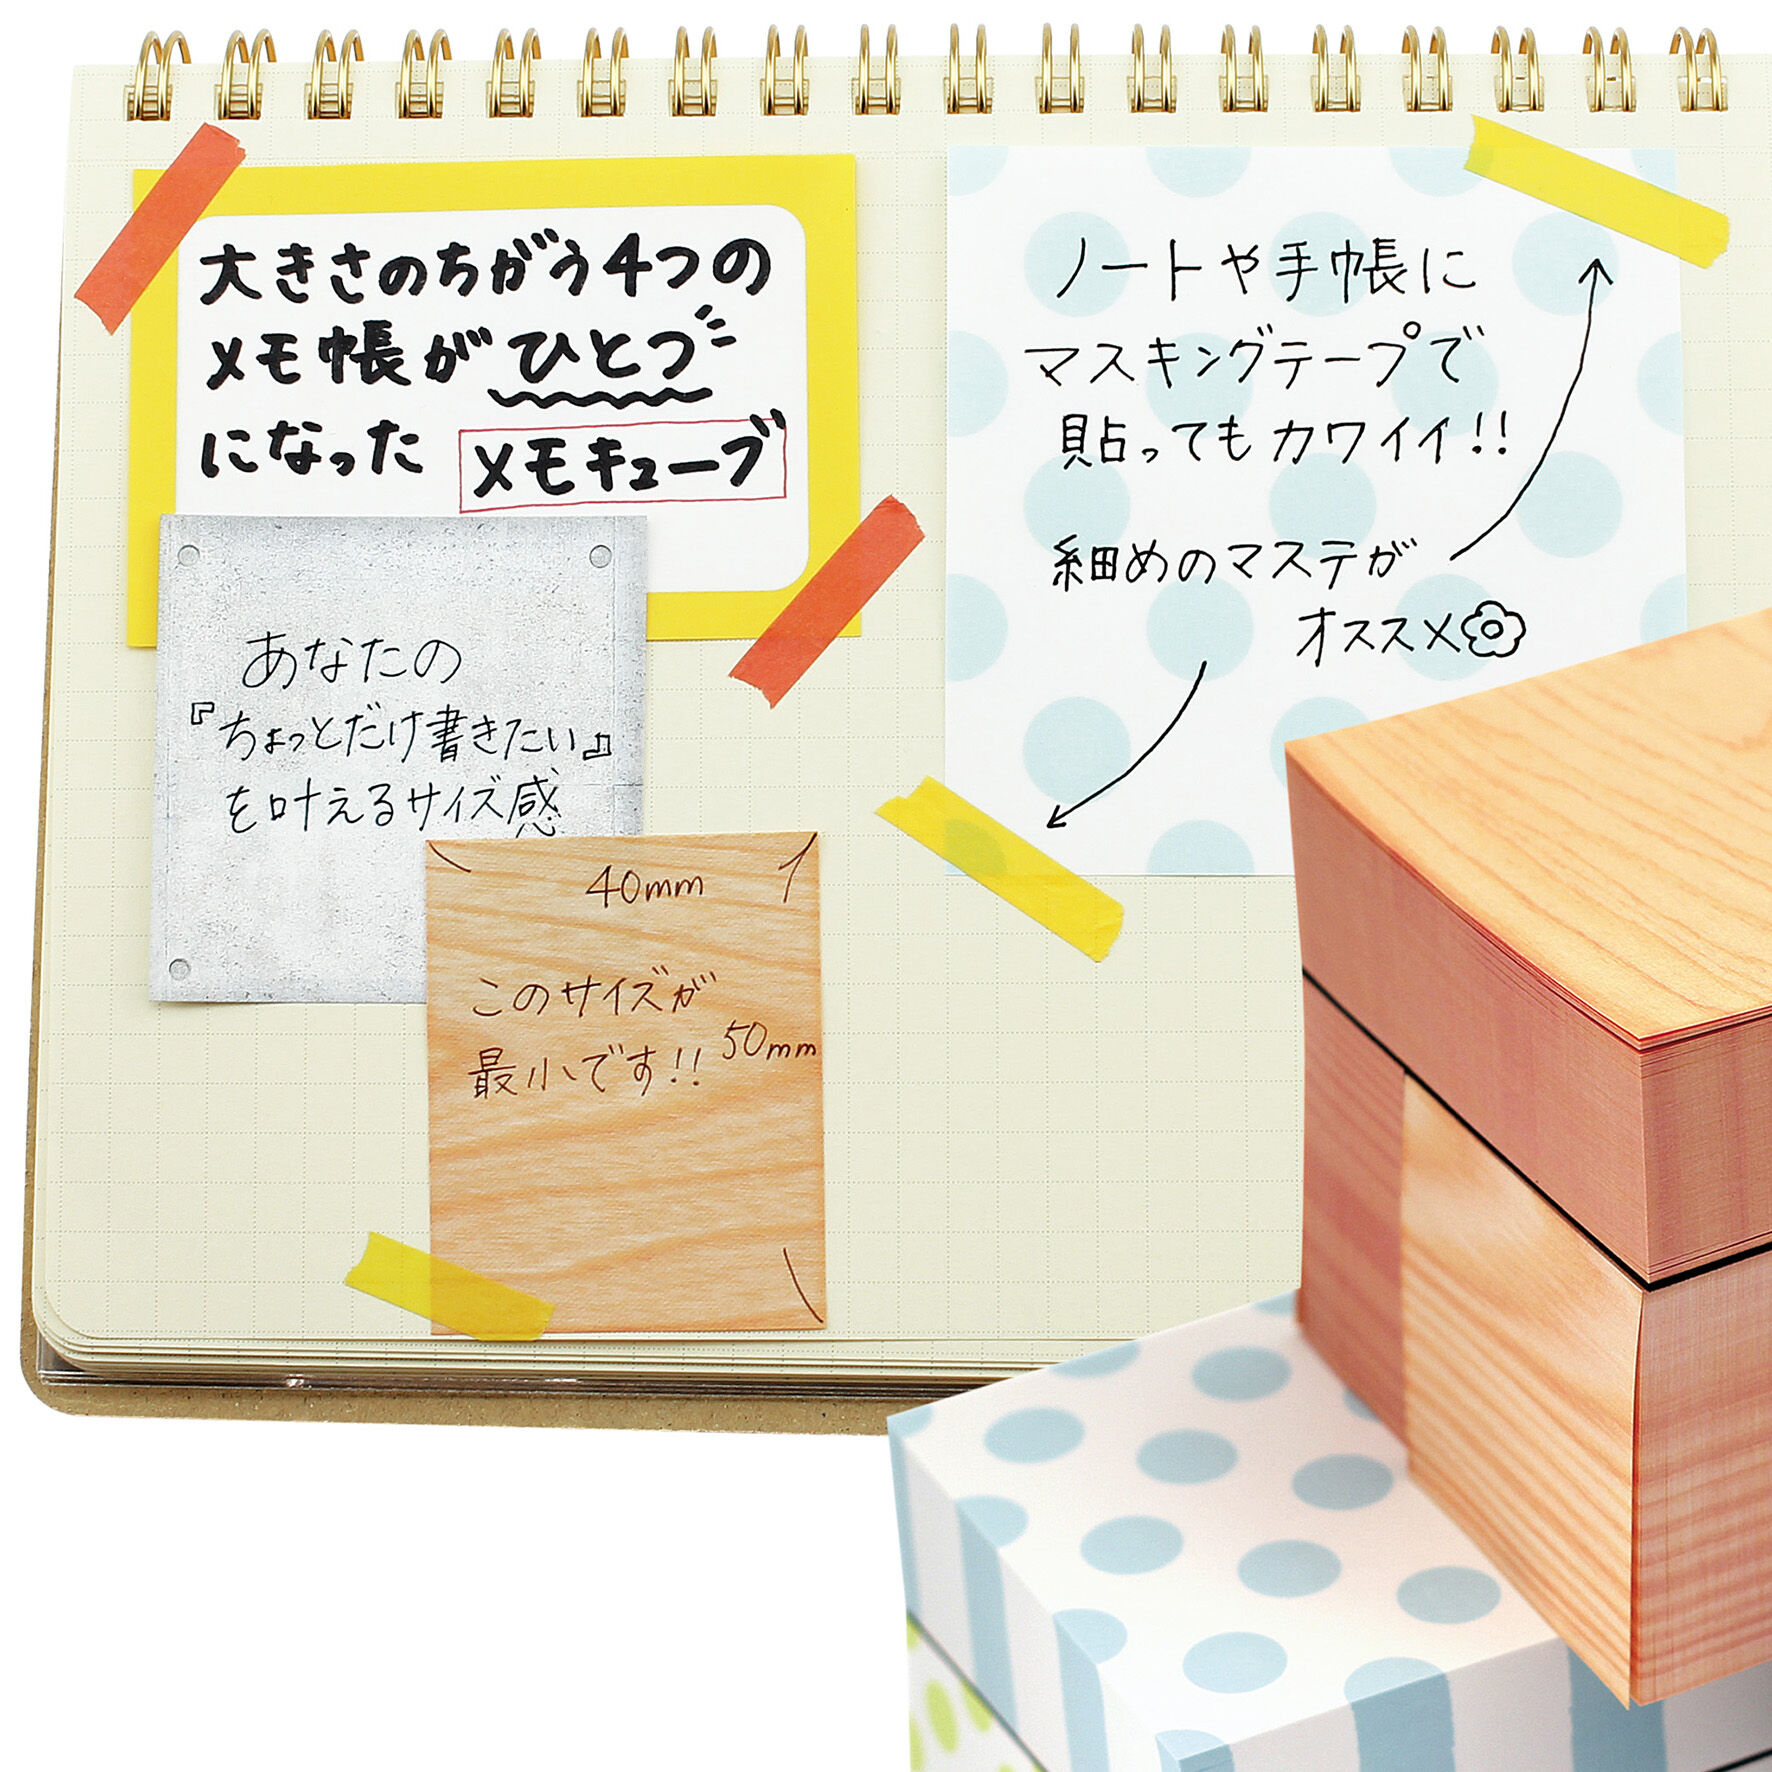 大きさのちがう4つの
メモ帳がひとつ
になった メモキューブ
あなたの
『ちょっとだけ書きたい』
を叶えるサイズ感
40mm
このサイズが
最小です!!
50mm
ノートや手帳に
マスキングテープで
貼ってもカワイイ!!
細めのマステが
オススメ